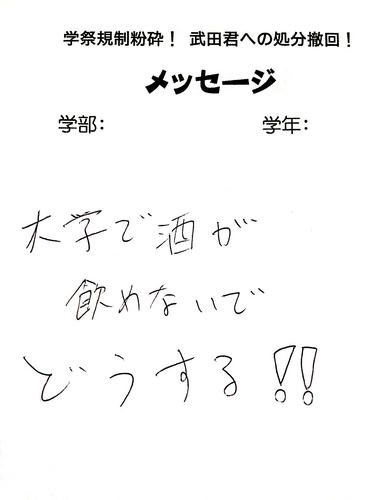 学祭規制粉砕! 武田君への処分撤回!
メッセージ
学部: 学年:
大学で酒が
飲めないで
どうする!!